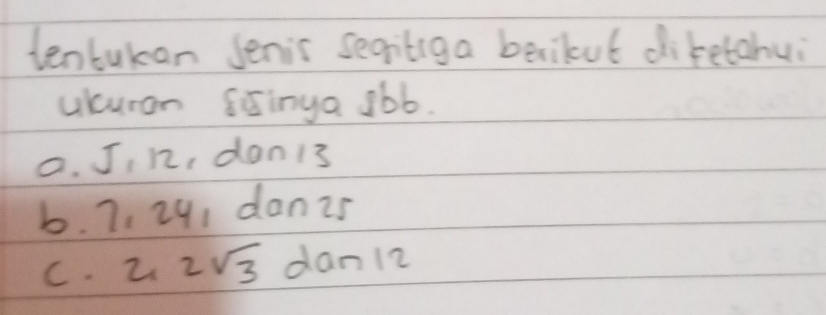 tentukan Jenis segitiga berikut diketahui
ukuran sisinya sbb.
a. 5, 12, dan 13
b. 7, 24, dan 25
c. 2, 2√3 dan 12